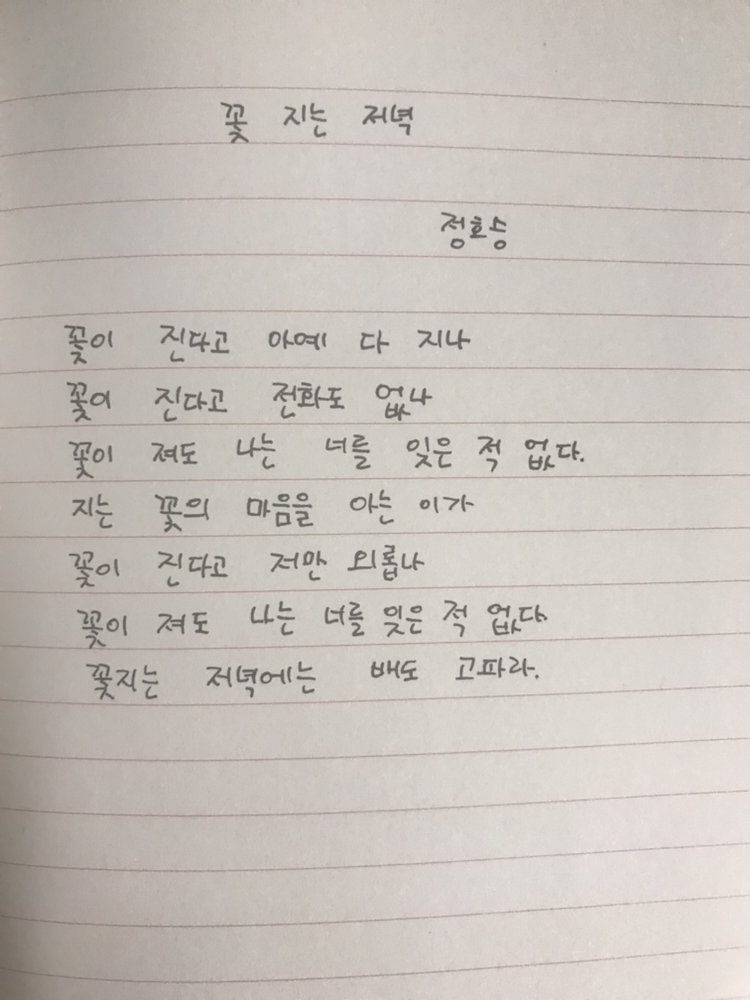 꽃 지는 저녁
정호승
꽃이 진다고 아예 다 지나
꽃이 진다고 전화도 없나
꽃이 져도 나는 너를 잊은 적 없다.
지는 꽃의 마음을 아는 이가
꽃이 진다고 저만 외롭나
꽃이 져도 나는 너를 잊은 적 없다
꽃지는 저녁에는 배도 고파라.